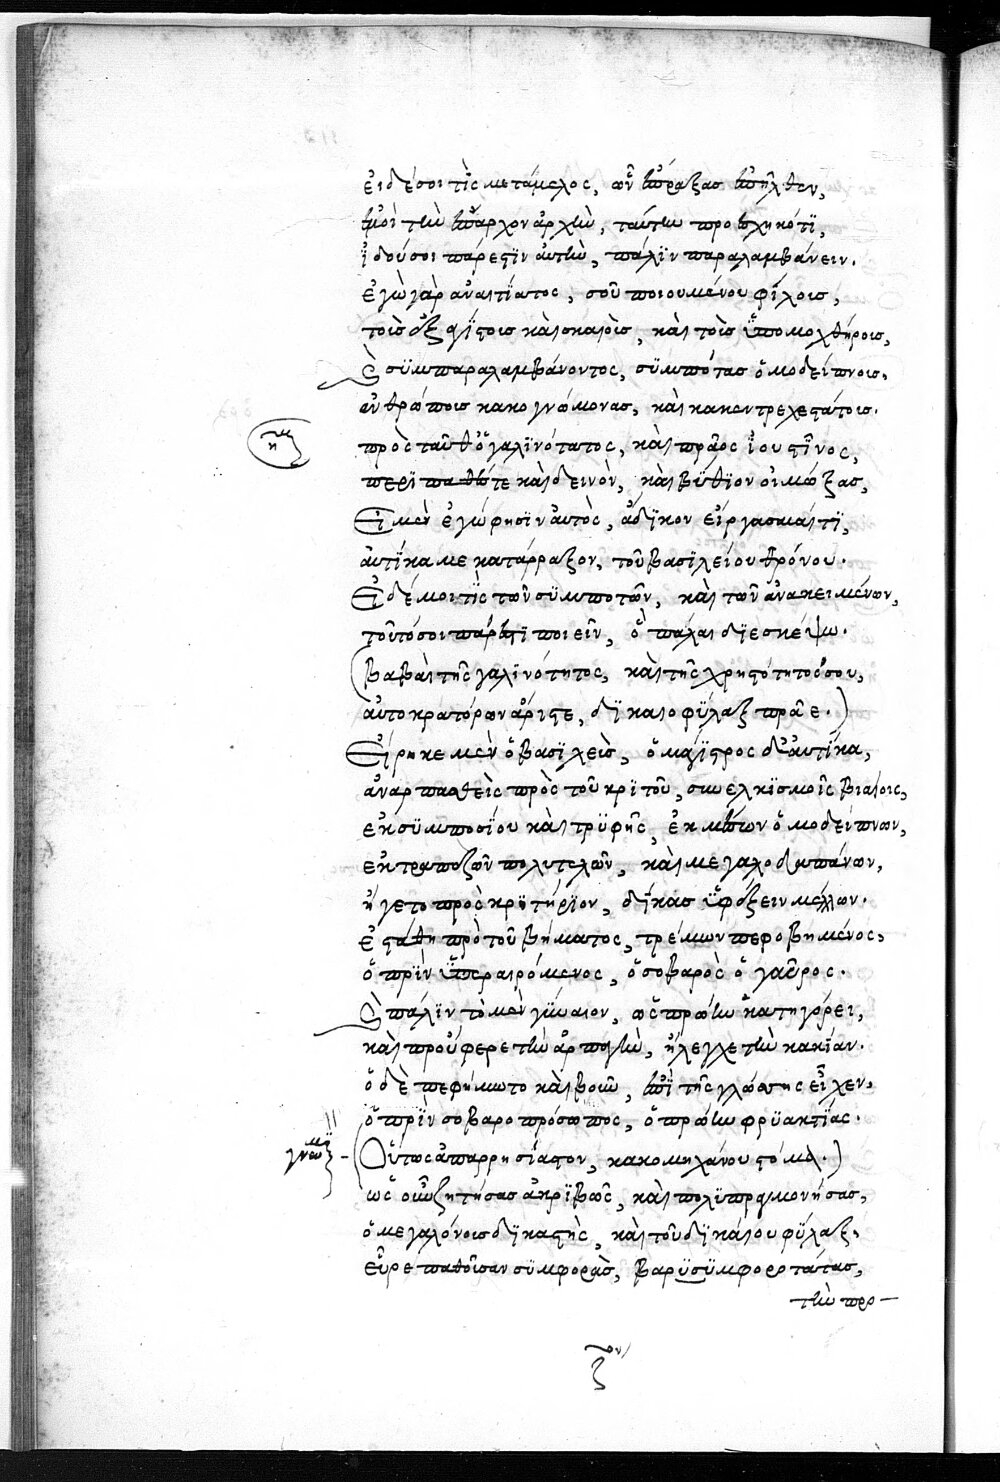 εἰ δέ σοι τὶς μετάμελος, ὧν ἔπραξας ἐπῆλθεν,
ἐμοὶ τὴν ἔπαρχον ἀρχὴν, ταύτην προσχηκότϊ,
ἰδού σοι πάρεςϊν αὐτὴν, πάλϊν παραλαμβάνειν.
ἐγὼ γὰρ ἀναιτίατος, σοῦ ποιουμένου φίλοις,
τοῖς ἀξαγΐςοις καὶ σκαιοῖς, καὶ τοῖς ὑπομοχθήροις,
καὶ σϋμπαραλαμβάνοντος, σϋμπότας ὁμοδείπνοις,
ἀνθρώποις κακογνώμονας, καὶ κακεντρεχεςάτοις.
πρὸς ταῦθ' ὁ γαλϊνότατος, καὶ πρᾶος ἰουςῖνος,
περϊπαθές τε καὶ δεινὸν, καὶ βϋθϊον οἰμώξας,
Εἰ μὲν ἐγώ φησϊν αὐτὸς, ἄδϊκον εἴργασμαί τϊ,
αὐτίκα με κατάρραξον, τοῦ βασϊλείου θρόνου.
Εἰ δέ μοι τῒς τῶν σϋμποτῶν, καὶ τῶν ἀνακειμένων,
τοῦτό σοι πάρεςϊ ποιεῖν, ὃ πάλαι δϊεσκέψω.
(Βαβαὶ τῆς γαλϊνότητος, καὶ τῆς χρηςότητός σου,
αὐτοκρατόρων ἄριςε, δϊκαιοφϋλαξ πρᾶε.)
Εἴρηκε μὲν ὁ βασϊλεὺς, ὁ μάγϊςρος δ' αὐτίκα,
ἀναρπασθεὶς πρὸς τοῦ κρϊτοῦ, συνελκϊσμοῖς βιαίοις,
ἐκ σϋμποσΐου καὶ τρϋφῆς, ἐκ μέσων ὁμοδείπνων,
ἐκ τραπεζῶν πολυτελῶν, καὶ μεγαλοδαπάνων,
ἤγετο πρὸς κρϊτήρϊον, δΐκας ὑφέξειν μέλλων.
ἐςάθη πρὸ τοῦ βήματος, τρέμων πεφοβημένος,
ὁ πρὶν ὑπεραιρόμενος, ὁ σοβαρὸς ὁ γαῦρος.
καὶ πάλϊν τὸ μὲν γύναιον, ὡς πρώην κατηγόρει,
καὶ προὔφερε τὴν ἁρπαγὴν, ἤλεγχε τὴν κακΐαν.
ὁ δὲ πεφήμωτο καὶ βοῦν, ἐπὶ τῆς γλώσσης εἶχεν,
ὁ πρὶν σοβαροπρόσωπος, ὁ πρώην φρϋακτΐας.
γνώμη (Οὕτως ἀπαρρησίαςον, κακομηχάνου ςόμα.)
ὡς οὖν ζητήσας ἀκρϊβῶς, καὶ πολϋπραγμονήσας,
ὁ μεγαλόνους δϊκαςὴς, καὶ τοῦ δϊκαίου φϋλαξ,
εὗρε παθοῦσαν σϋμφορὰς, βαρυσϋμφορωτάτας,
τὴν προ—
ζον